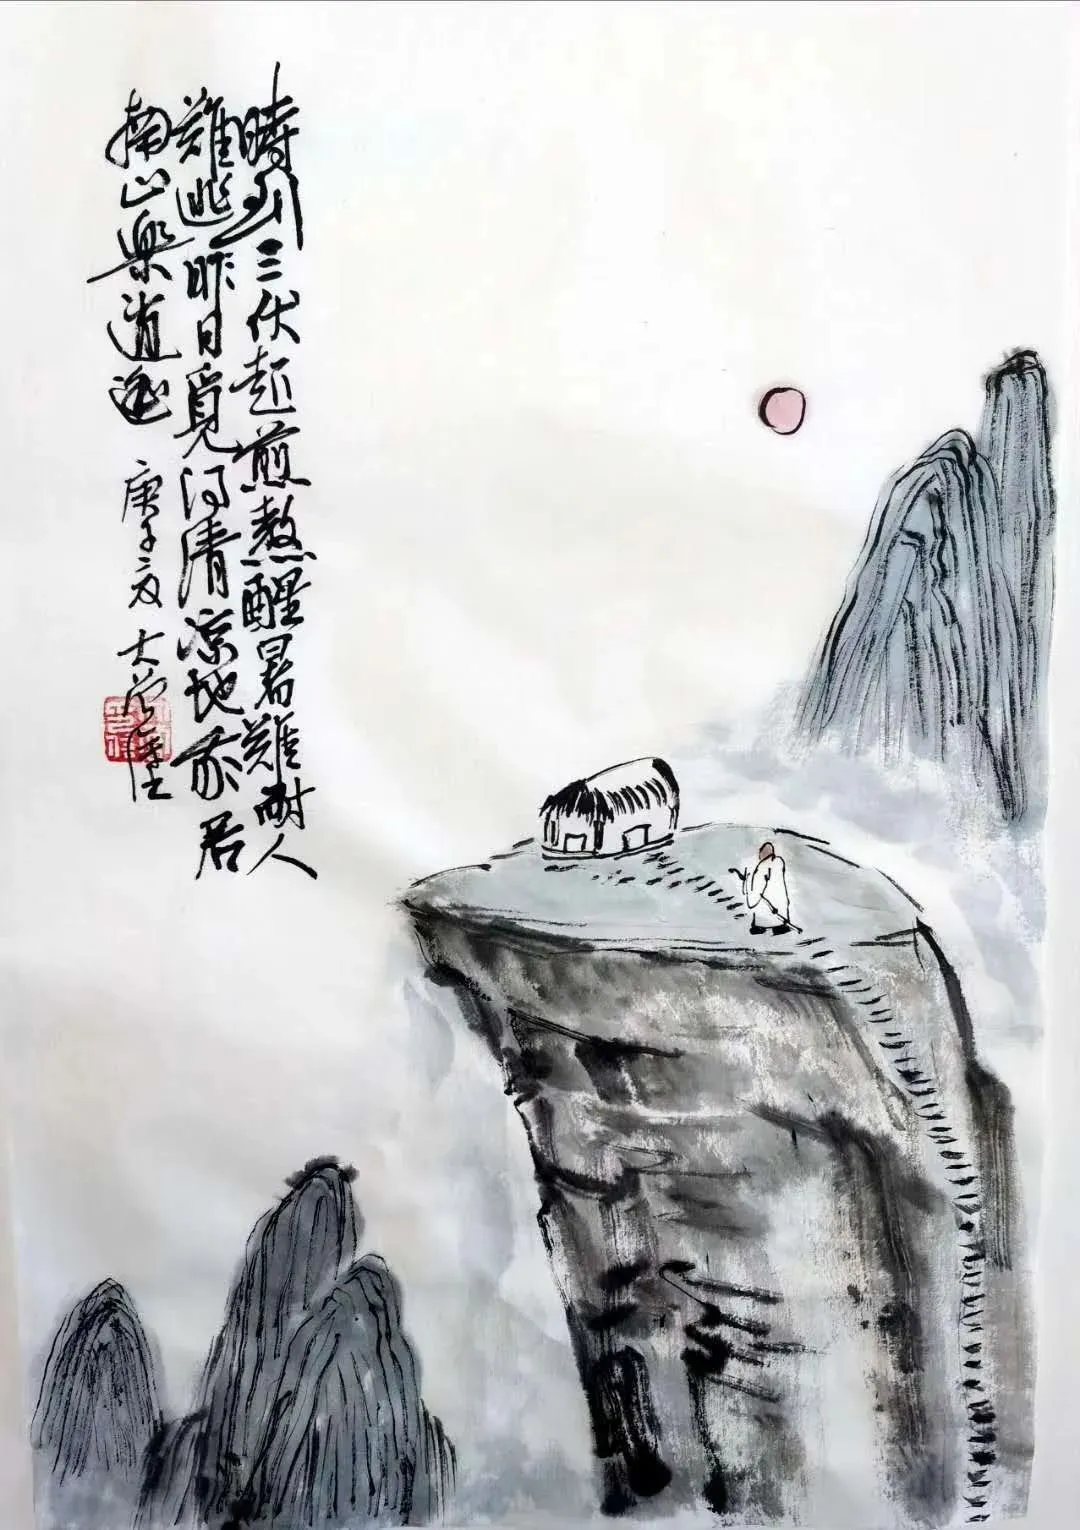 時到三伏起煎熬醒暑難耐人
難逃昨日覓得清凉地家居
南山樂逍遥
庚子夏大